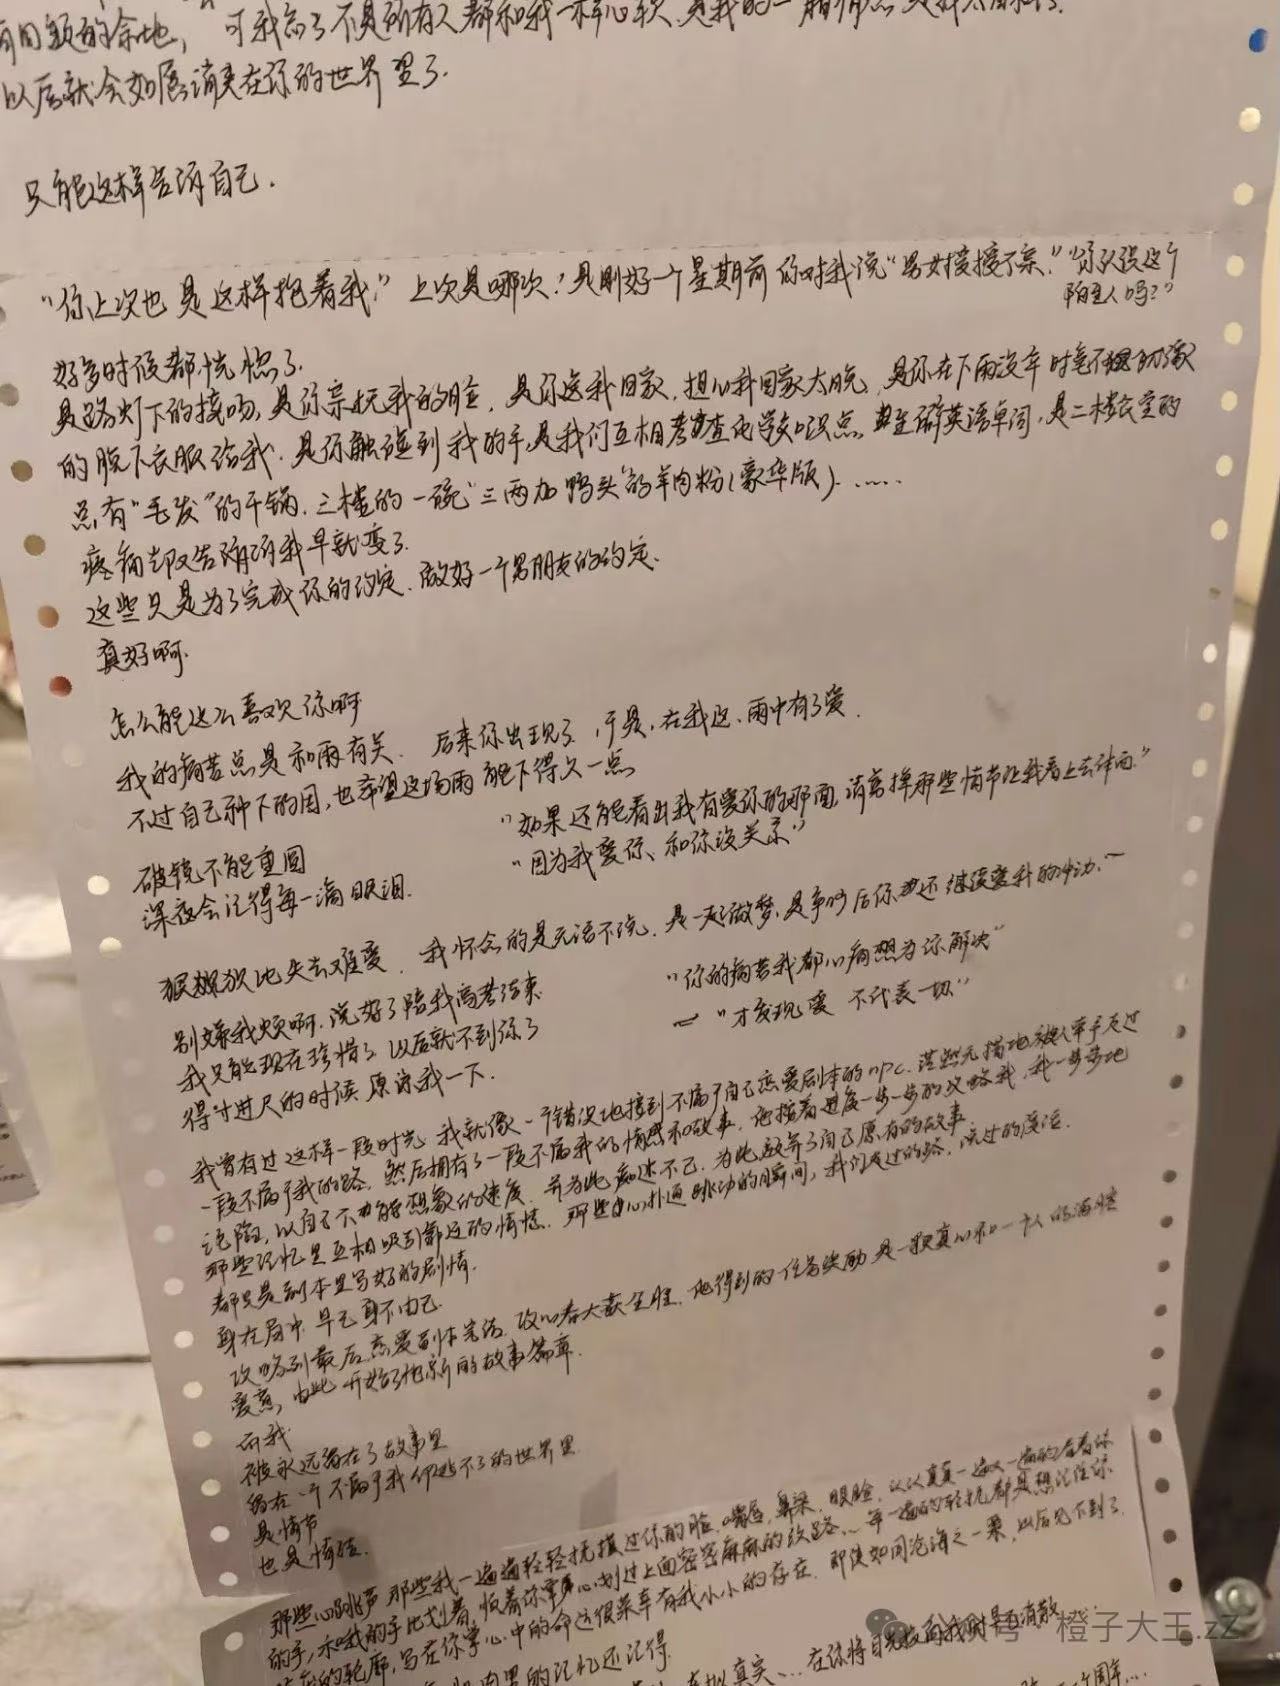 可我忘了不是所有人都和我一样心软,是我的一厢情愿
以后就会如愿消失在你的世界里了.
只能这样告诉自己.
“你上次也是这样抱着我.” 上次是哪次?是刚好一个星期前你对我说“男女授受不亲.”“你认识这个
陌生人吗?”
好多时候都恍惚了.
是路灯下的接吻,是你亲抚我的脸,是你送我回家,担心我回家太晚,是你在下雨没伞时毫不犹豫
的脱下衣服给我.是你触碰到我的手,是我们互相考查化学知识点,英语单词,是二楼
点有“毛发”的干锅.三楼的一碗“三两加鸭头”的羊肉粉(豪华版)......
疼痛却又告诉我早就变了.
这些只是为了完成你的约定.做好一个男朋友的约定.
真好啊.
怎么能这么喜欢你啊
我的痛苦总是和雨有关. 后来你出现了,于是,在我这、雨中有了爱.
不过自己种下的因,也希望这场雨能下得久一点
“如果还能看出我有爱你的那面,请剪掉那些情节让我看上去体面.”
破镜不能重圆 “因为我爱你、和你没关系”
深夜会记得每一滴眼泪.
狠狠地失去难受. 我怀念的是无话不说.是一起做梦,是争吵后你还继续爱我的冲动.~
别嫌我烦啊.说好了陪我高考结束. “你的痛苦我都心痛想为你解决”
我只能现在珍惜了 以后就不到你了 “才发现爱 不代表一切”
得寸进尺的时候 原谅我一下.
我曾有过这样一段时光 我就像一个错误地接到不属于自己恋爱剧本的npc.茫然无措地被人牵手走过
一段不属于我的路.然后拥有了一段不属我的情感和故事.他按着进度一步一步的攻略我,我一步步地
沦陷,以自己不能想象的速度.并为此痴迷不已.为此放弃了自己原有的故事.
那些记忆里互相吸引靠近的情愫.那些心扑通跳动的瞬间,我们走过的路.说过的废话.
都只是剧本里写好的剧情.
身在局中 早已身不由己.
攻略到最后,恋爱副本完结.攻心者大获全胜.他得到的任务奖励是一颗真心和一个人的满腔
爱意,由此开始了他新的故事篇章.
而我.
被永远留在了故事里
留在一个不属于我却逃不了的世界里.
是情节
也是情结.
那些心跳声 那些我一遍遍轻轻抚摸过你的脸.嘴唇,鼻梁.眼睑,认认真真一遍又一遍的看着你
的手,和我的手比划着,顺着你掌心划过上面密密麻麻的纹路、每一遍的轻抚都是想记住你
的轮廓,写在你掌心中的命运很荣幸有我小小的存在.即使如同沧海之一粟,以后见不到了.
的记忆还记得
真实、...在你将目光投向我时是否消散
橙子大王.zZ
周年....